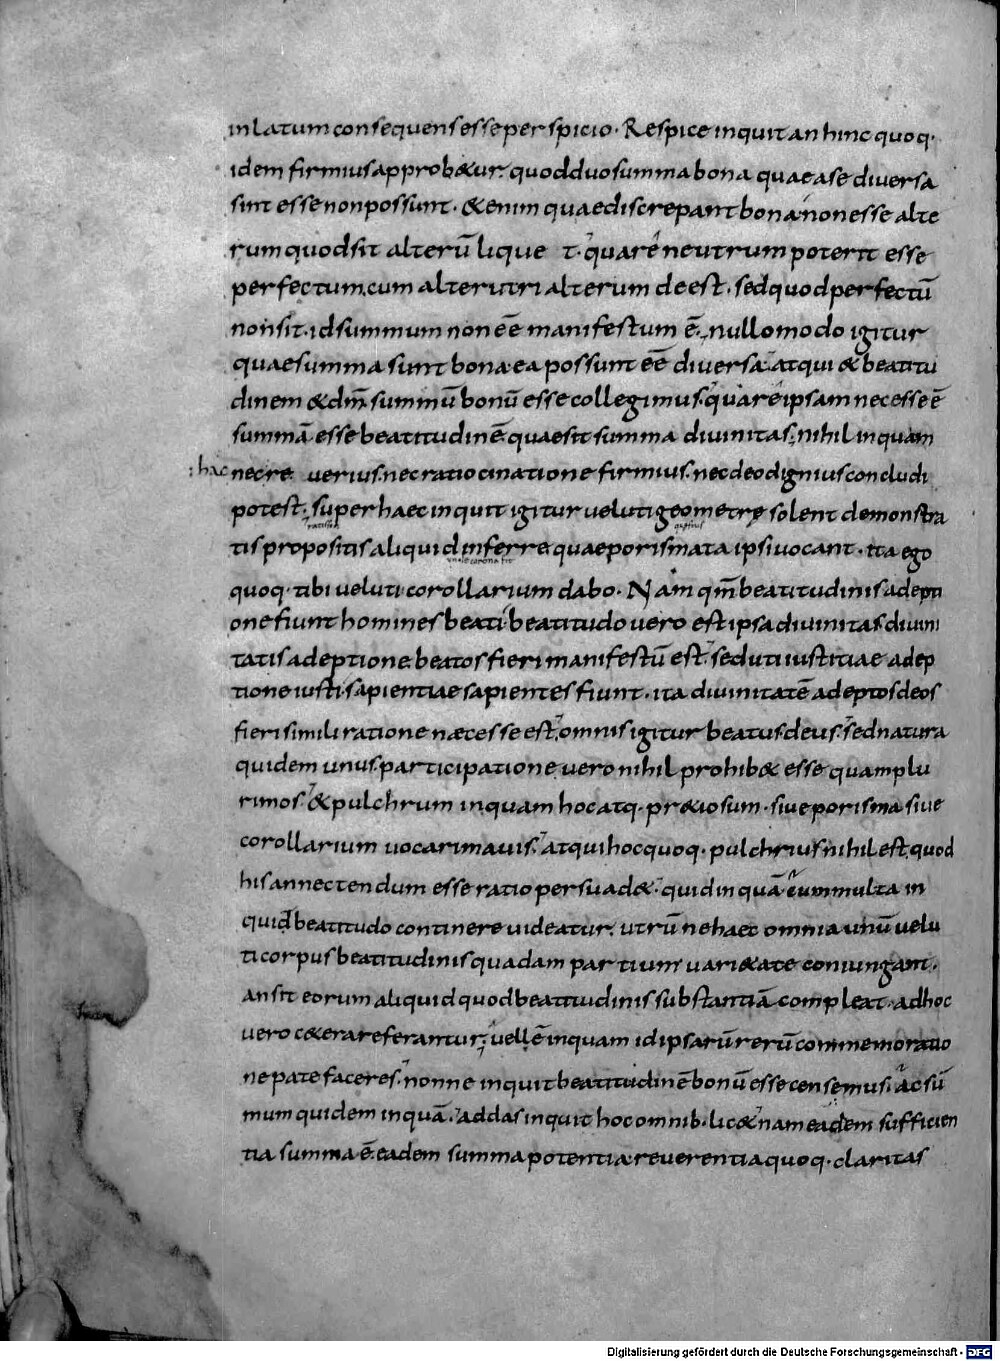 inlatum consequens esse perspicio. Respice inquit an hinc quoq.
idem firmius approb&ur. quod duo summa bona quae a se diversa
sint esse non possunt. &enim quae discrepant bona non esse alte
rum quod sit alterū lique t. quare neutrum poterit esse
perfectum. cum alterutri alterum deest. sed quod perfectū
non sit. id summum non eē manifestum ē. nullo modo igitur
quae summa sunt bona ea possunt eē diversa. atqui & beatitu
dinem & dm̄ summū bonū esse collegimus. quare ipsam necesse ē
summā esse beatitudinē quae sit summa divinitas. nihil inquam
: hac nec re verius. nec ratiocinatione firmius. nec deo dignius concludi
potest. super haec inquit igitur veluti geometrę solent demonstra
tis propositis aliquid inferre quae porismata ipsi vocant. ita ego
quoq. tibi veluti corollarium dabo. Nam qm̄ beatitudinis adepti
one fiunt homines beati. beatitudo vero est ipsa divinitas. divini
tatis adeptione beatos fieri manifestū est. sed uti iustitiae adep
tione iusti sapientiae sapientes fiunt. ita divinitatē adeptos deos
fieri simili ratione næcesse est. omnis igitur beatus. deus. sed natura
quidem unus. participatione vero nihil prohib& esse quam plu
rimos. & pulchrum inquam hoc atq. pr&iosum. sive porisma sive
corollarium vocari mavis. atqui hoc quoq. pulchrius nihil est. quod
his annectendum esse ratio persuad&. quid inquā cum multa in
quid beatitudo continere videatur. utrū ne haec omnia unū velu
ti corpus beatitudinis quadam partium vari&ate coniungant.
an sit eorum aliquid quod beatitudinis substantiā compleat. ad hoc
vero c&era referantur. vellē inquam id ipsarū rerū commemoratio
ne patefaceres. nonne inquit beatitudinē bonū esse censemus. ac sū
mum quidem inquā. addas inquit hoc omnib. lic& nam eadem sufficien
tia summa ē. eadem summa potentia reverentia quoq. claritas
Digitalisierung gefördert durch die Deutsche Forschungsgemeinschaft - DFG